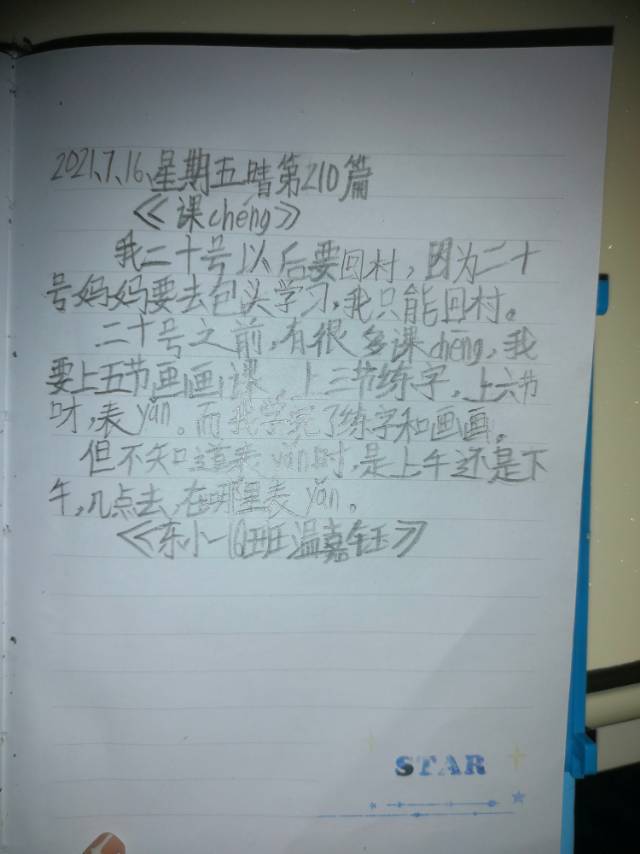 2021、7、16、星期五晴第210篇
《课chéng》
我二十号以后要回村,因为二十
号妈妈要去包头学习,我只能回村。
二十号之前,有很多课chéng,我
要上五节画画课、上三节练字,上六节
时,表yǎn。而我学完了练字和画画。
但不知道表yǎn时,是上午还是下
午,几点去,在哪里表yǎn。
《东小一(6)班温嘉钰》
STAR